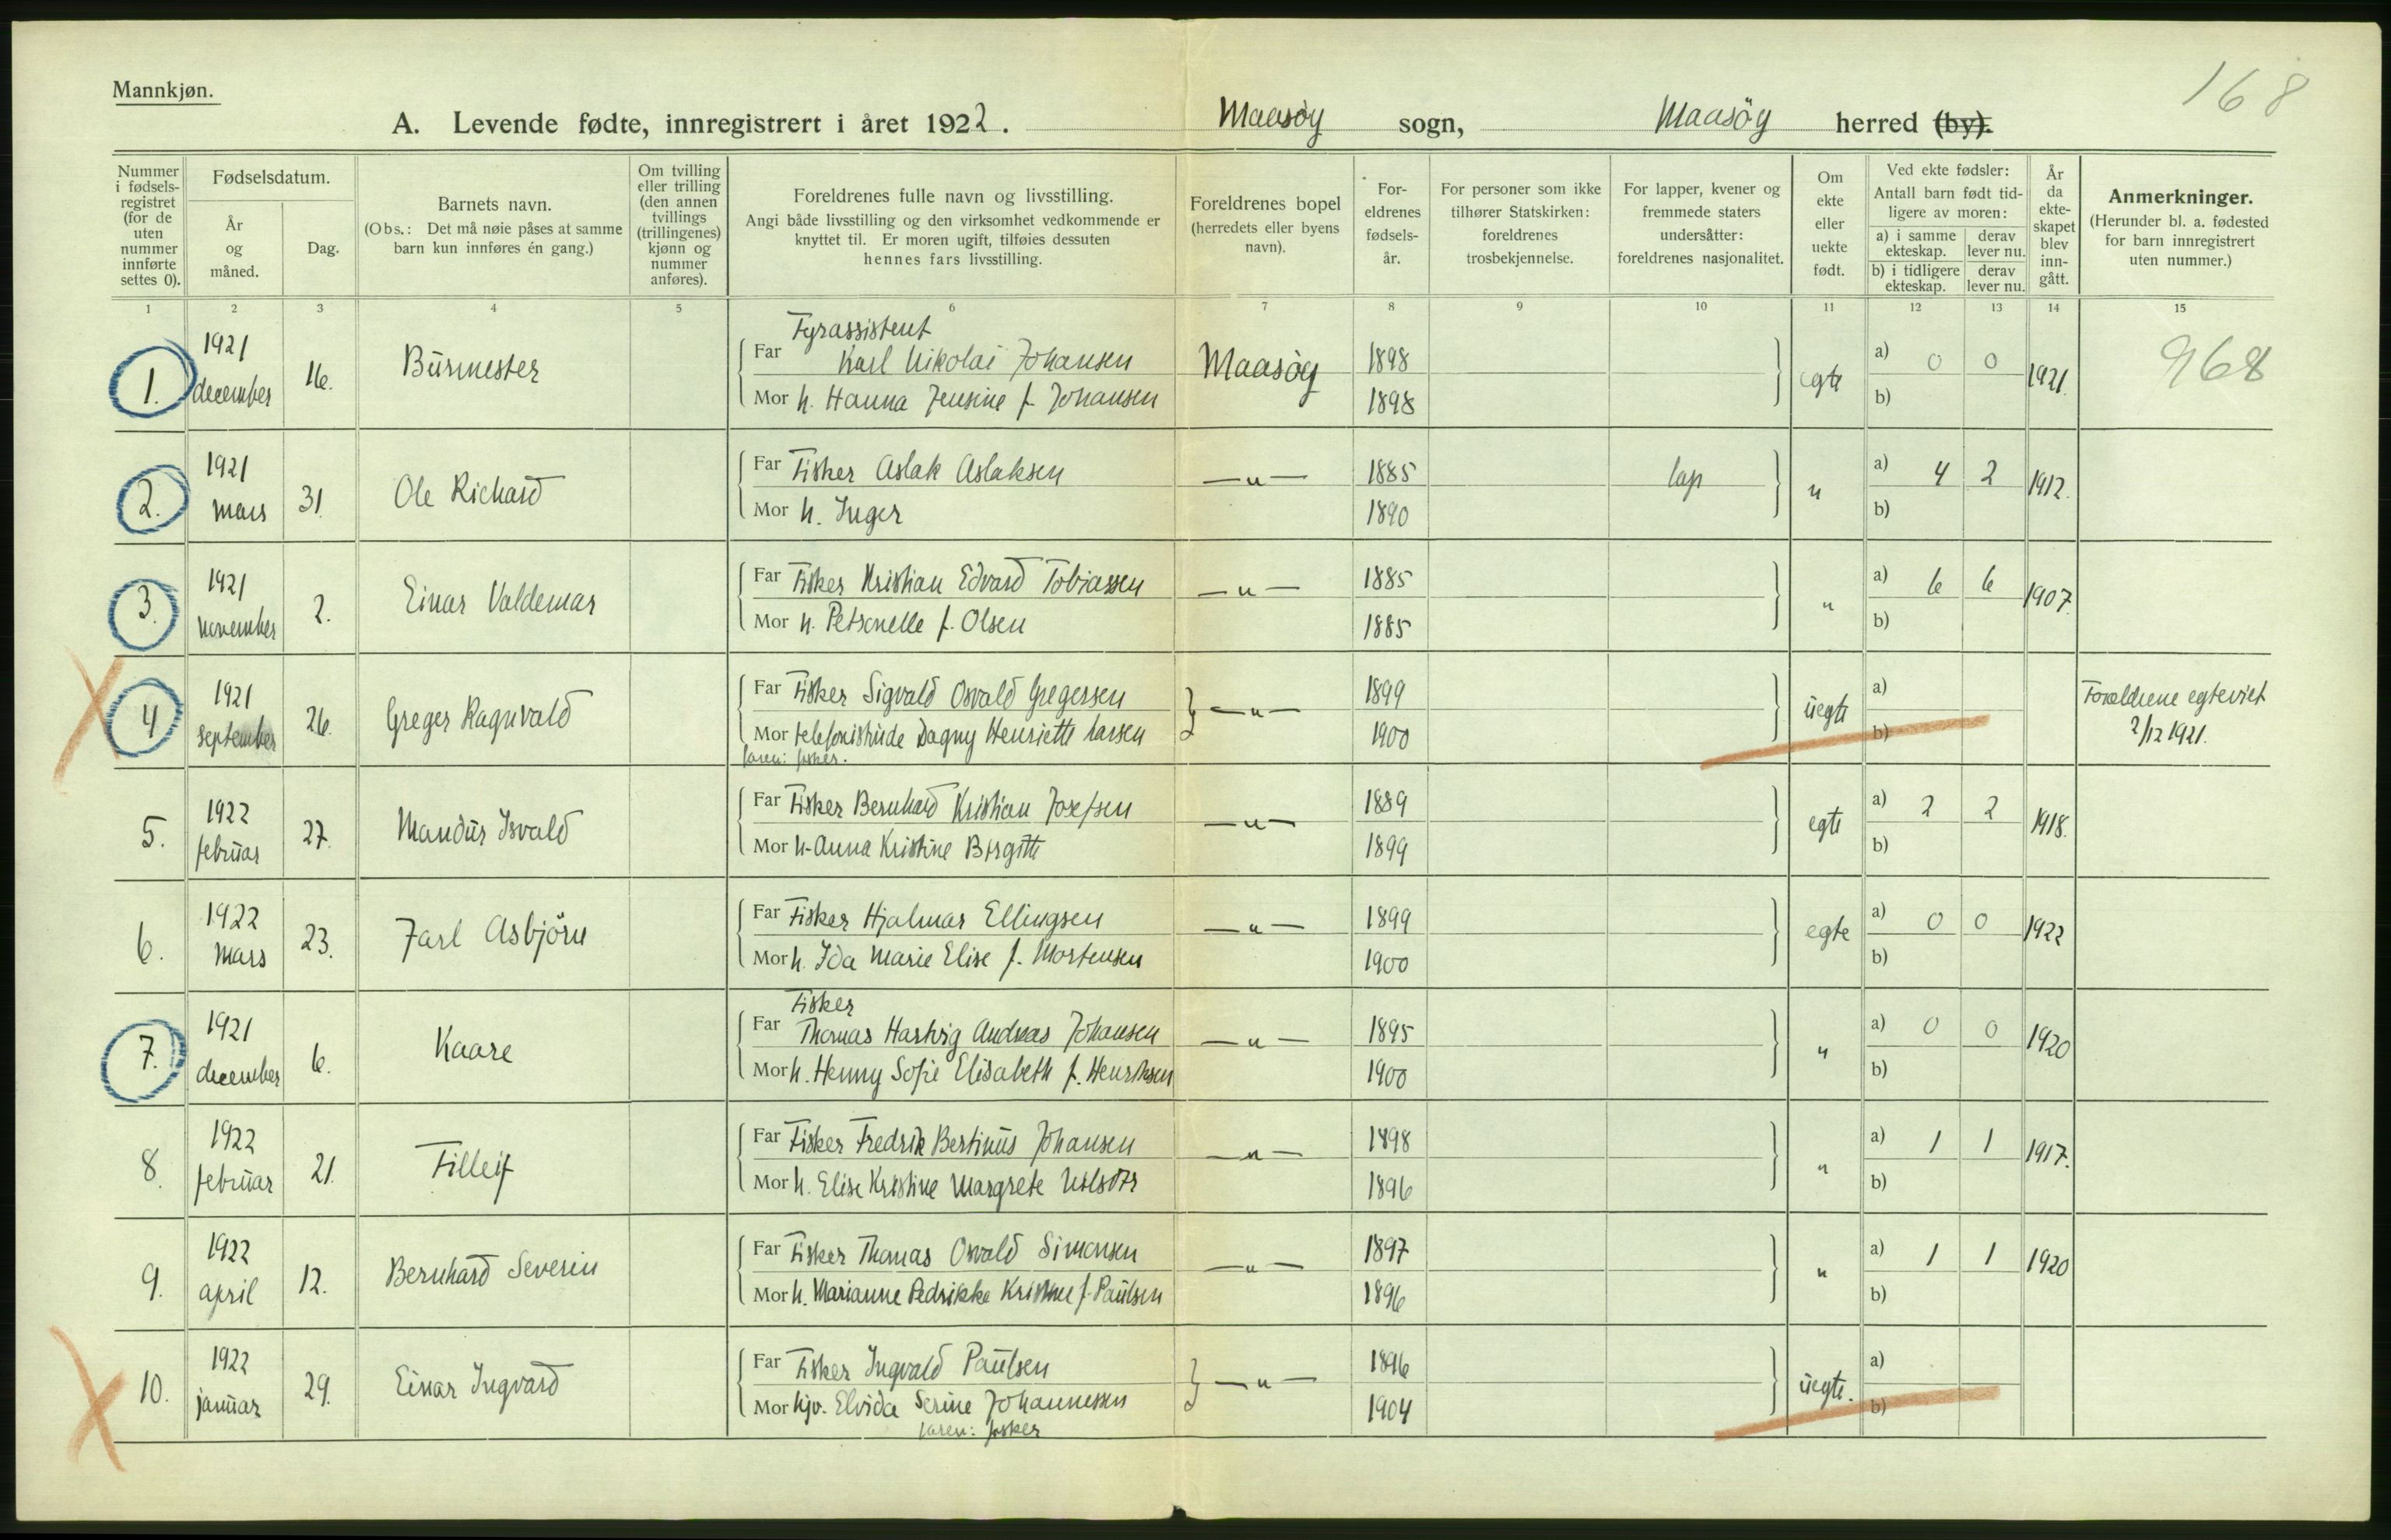 168
Mannkjøn.
A. Levende fødte, innregistrert i året 1922. Maasöy sogn, Maasöy herred (by).
Nummer i fødsels-registret (for de uten nummer innførte settes 0).
Fødselsdatum.
År og måned.
Dag.
Barnets navn.
(Obs.: Det må nøie påses at samme barn kun innføres én gang.)
Om tvilling eller trilling (den annen tvillings (trillingenes) kjønn og nummer anføres).
Foreldrenes fulle navn og livsstilling.
Angi både livsstilling og den virksomhet vedkommende er knyttet til. Er moren ugift, tilføies dessuten hennes fars livsstilling.
Foreldrenes bopel (herredets eller byens navn).
For-eldrenes fødsels-år.
For personer som ikke tilhører Statskirken: foreldrenes trosbekjennelse.
For lapper, kvener og fremmede staters undersåtter: foreldrenes nasjonalitet.
Om ekte eller uekte født.
Ved ekte fødsler:
Antall barn født tid-ligere av moren:
a) i samme ekteskap. derav lever nu.
b) i tidligere ekteskap. derav lever nu.
År da ekte-skapet blev inn-gått.
Anmerkninger.
(Herunder bl. a. fødested for barn innregistrert uten nummer.)
1 2 3 4 5 6 7 8 9 10 11 12 13 14 15
1. 1921 december 16. Bürmester
Fyrassistent
Far Karl Nikolai Johansen Maasöy 1898 egte a) 0 0 1921. 968
Mor h. Hanna Jensine f. Johansen 1898 b)
2. 1921 mars 31. Ole Richard
Far Fisker Aslak Aslaksen —"— 1885 lap " a) 4 2 1912.
Mor h. Inger 1890 b)
3. 1921 november 2. Einar Valdemar
Far Fisker Kristian Edvard Tobiassen —"— 1885 " a) 6 6 1907.
Mor h. Petronelle f. Olsen 1885 b)
4 1921 september 26. Greger Ragnvald
Far Fisker Sigvald Osvald Gregersen —"— 1899 üegte a) Forældrene egteviet 2/12 1921.
Mor telefonistinde Dagny Henriette Larsen 1900 b)
faren: fisker.
5. 1922 februar 27. Mandüs Isvald
Far Fisker Bernhard Kristian Josefsen —"— 1889 egte a) 2 2 1918.
Mor h. Anna Kristine Birgitte 1899 b)
6. 1922 mars 23. Jarl Asbjörn
Far Fisker Hjalmar Ellingsen —"— 1899 egte a) 0 0 1922
Mor h. Ida Marie Elise f. Mortensen 1900 b)
7. 1921 december 6. Kaare
Fisker
Far Thomas Hartvig Andreas Johansen —"— 1895 " a) 0 0 1920
Mor h. Henny Sofie Elisabeth f. Henriksen 1900 b)
8. 1922 februar 21. Filleif
Far Fisker Fredrik Bertinüs Johansen —"— 1898 " a) 1 1 1917.
Mor h. Elise Kristine Margrete 1896 b)
9. 1922 april 12. Bernhard Severin
Far Fisker Thomas Osvald Simonsen —"— 1897 " a) 1 1 1920
Mor h. Marianne Pedrikke Kristine f. Paülsen 1896 b)
10. 1922 januar 29. Einar Ingvard
Far Fisker Ingvald Paülsen —"— 1896 üegte. a)
Mor hjv. Elvida Serine Johannessen 1904 b)
faren: fisker